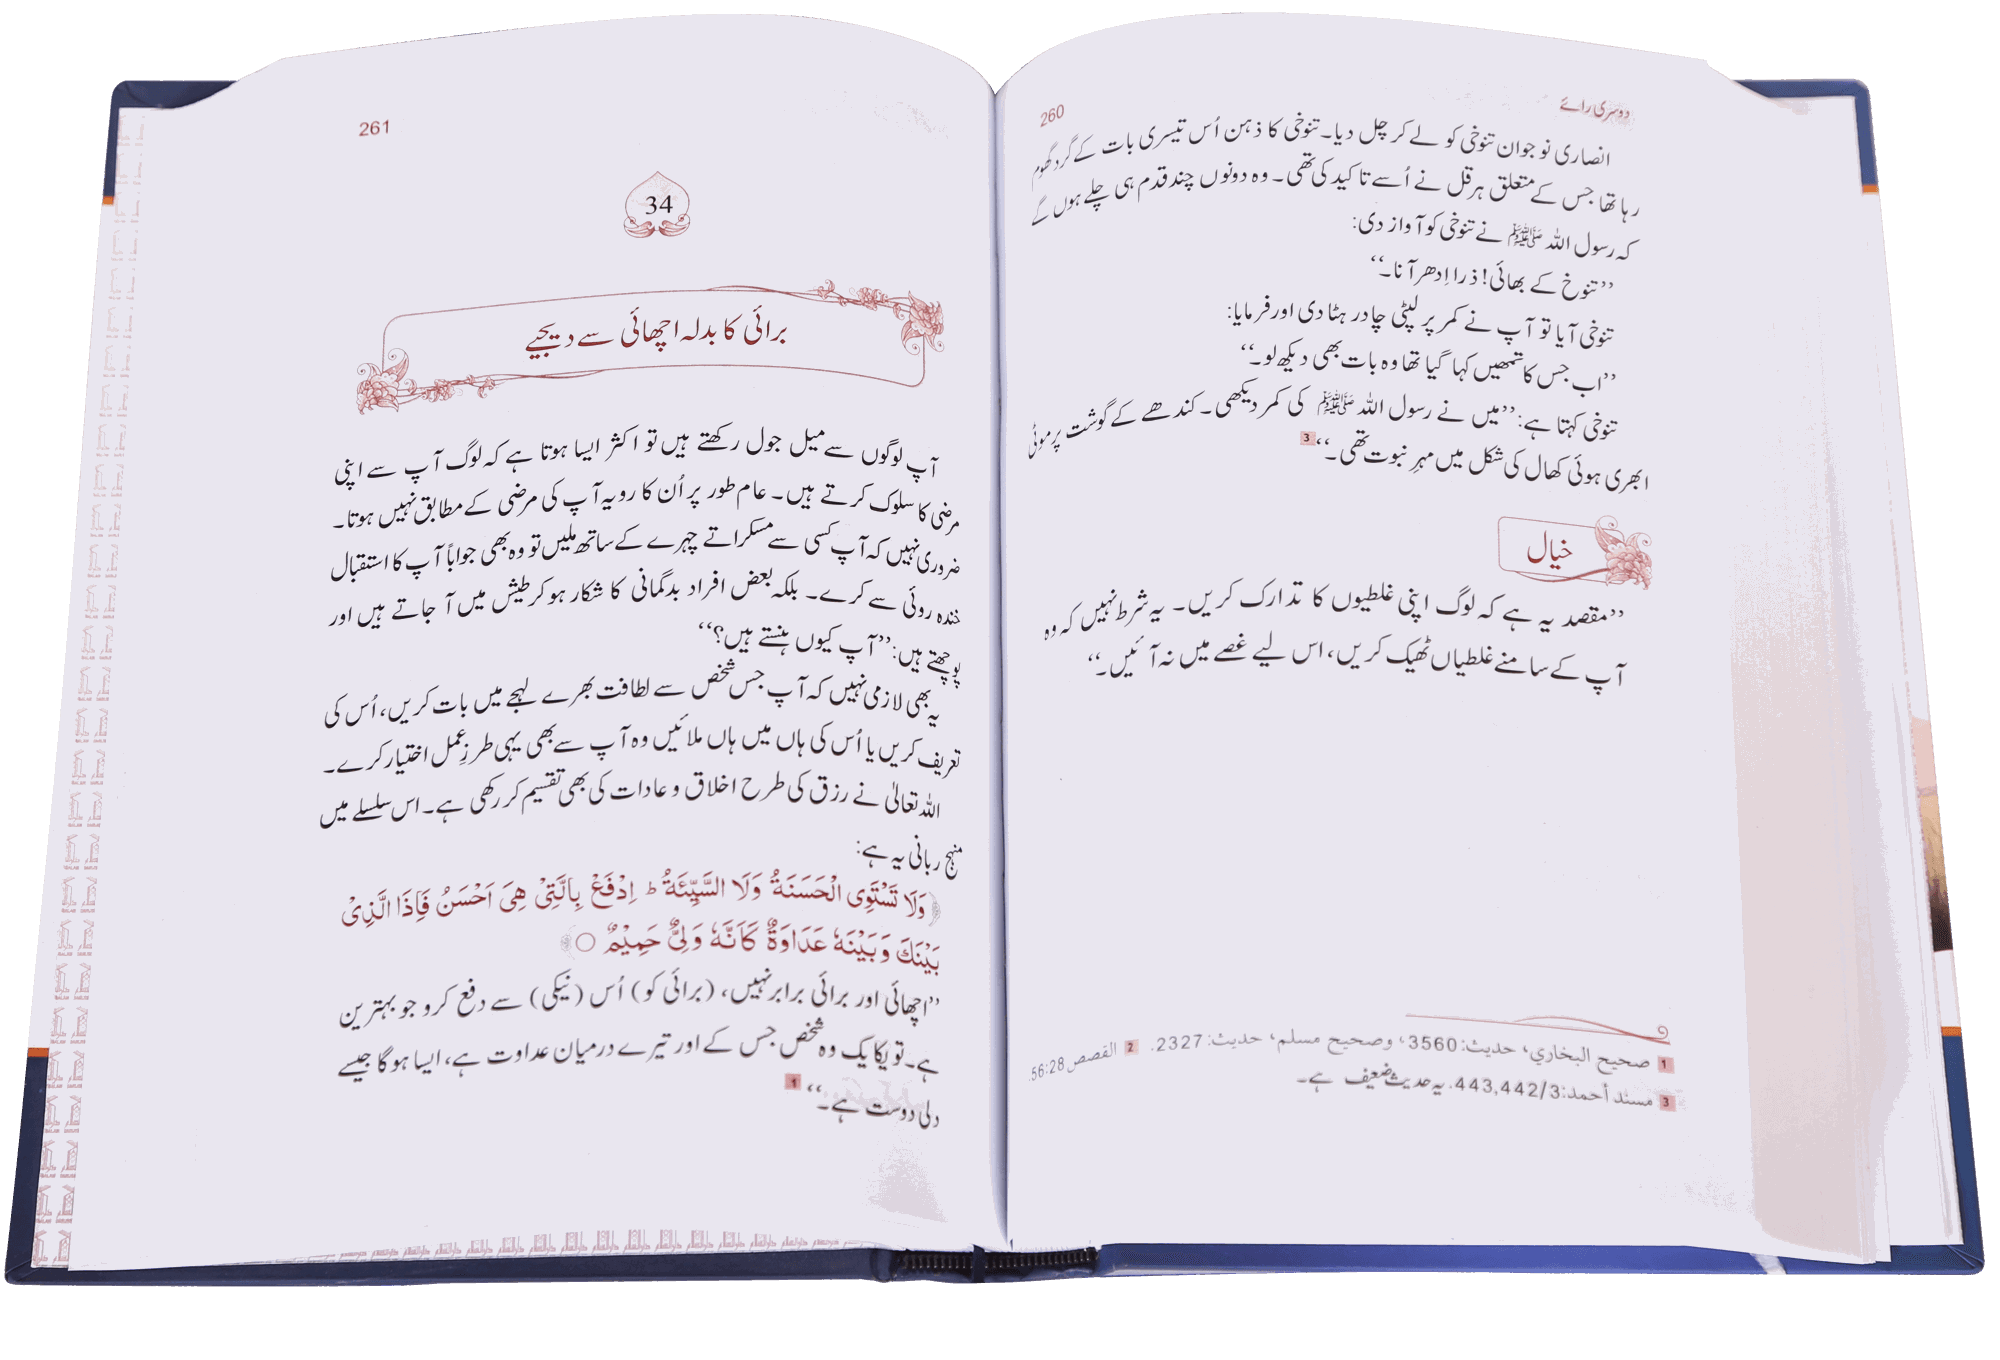 دوسری رائے
260
انصاری نوجوان تنوخی کو لے کر چل دیا۔ تنوخی کا ذہن اُس تیسری بات کے گرد گھوم
رہا تھا جس کے متعلق ہرقل نے اُسے تاکید کی تھی۔ وہ دونوں چند قدم ہی چلے ہوں گے
کہ رسول اللہ ﷺ نے تنوخی کو آواز دی:
’’تنوخ کے بھائی! ذرا اِدھر آنا۔‘‘
تنوخی آیا تو آپ نے کمر پر لپٹی چادر ہٹا دی اور فرمایا:
’’اب جس کا تمھیں کہا گیا تھا وہ بات بھی دیکھ لو۔‘‘
تنوخی کہتا ہے: ’’میں نے رسول اللہ ﷺ کی کمر دیکھی۔ کندھے کے گوشت پر موٹی
ابھری ہوئی کھال کی شکل میں مہرِ نبوت تھی۔‘‘ 3
خیال
’’مقصد یہ ہے کہ لوگ اپنی غلطیوں کا تدارک کریں۔ یہ شرط نہیں کہ وہ
آپ کے سامنے غلطیاں ٹھیک کریں، اس لیے غصے میں نہ آئیں۔‘‘
1 صحيح البخاري، حديث: 3560، وصحيح مسلم، حديث: 2327. 2 القصص 56:28.
3 مسند أحمد: 443,442/3. یہ حدیث ضعیف ہے۔
261
34
برائی کا بدلہ اچھائی سے دیجیے
آپ لوگوں سے میل جول رکھتے ہیں تو اکثر ایسا ہوتا ہے کہ لوگ آپ سے اپنی
مرضی کا سلوک کرتے ہیں۔ عام طور پر اُن کا رویہ آپ کی مرضی کے مطابق نہیں ہوتا۔
ضروری نہیں کہ آپ کسی سے مسکراتے چہرے کے ساتھ ملیں تو وہ بھی جواباً آپ کا استقبال
خندہ روئی سے کرے۔ بلکہ بعض افراد بدگمانی کا شکار ہو کر طیش میں آ جاتے ہیں اور
پوچھتے ہیں: ’’آپ کیوں ہنستے ہیں؟‘‘
یہ بھی لازمی نہیں کہ آپ جس شخص سے لطافت بھرے لہجے میں بات کریں، اُس کی
تعریف کریں یا اُس کی ہاں میں ہاں ملائیں وہ آپ سے بھی یہی طرزِ عمل اختیار کرے۔
اللہ تعالیٰ نے رزق کی طرح اخلاق و عادات کی بھی تقسیم کر رکھی ہے۔ اس سلسلے میں
منہج ربانی یہ ہے:
﴿وَلَا تَسْتَوِی الْحَسَنَةُ وَلَا السَّيِّئَةُ ط اِدْفَعْ بِالَّتِیْ هِیَ اَحْسَنُ فَاِذَا الَّذِیْ
بَيْنَكَ وَبَيْنَهٗ عَدَاوَةٌ كَاَنَّهٗ وَلِیٌّ حَمِيْمٌ ○﴾
’’اچھائی اور برائی برابر نہیں، (برائی کو) اُس (نیکی) سے دفع کرو جو بہترین
ہے۔ تو یکایک وہ شخص جس کے اور تیرے درمیان عداوت ہے، ایسا ہو گا جیسے
دلی دوست ہے۔‘‘ 1